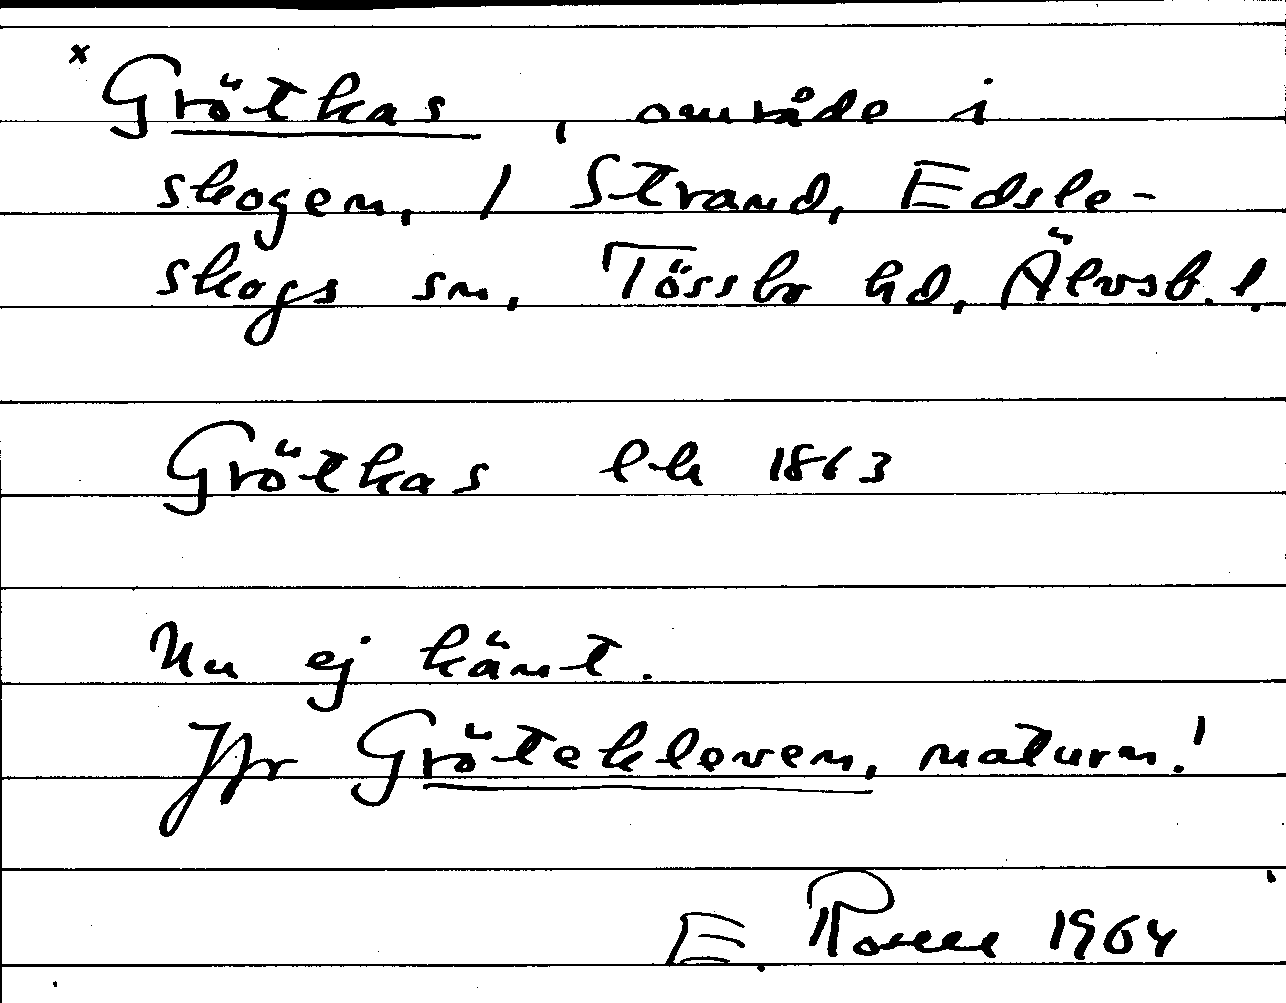 × Grötkas, område i
skogen, / Strand, Edsle-
skogs sn, Tössbo hd, Älvsb. l.
Grötkas lk 1863
Nu ej känt.
Jfr Grötekloven, naturn.!
E. 1964